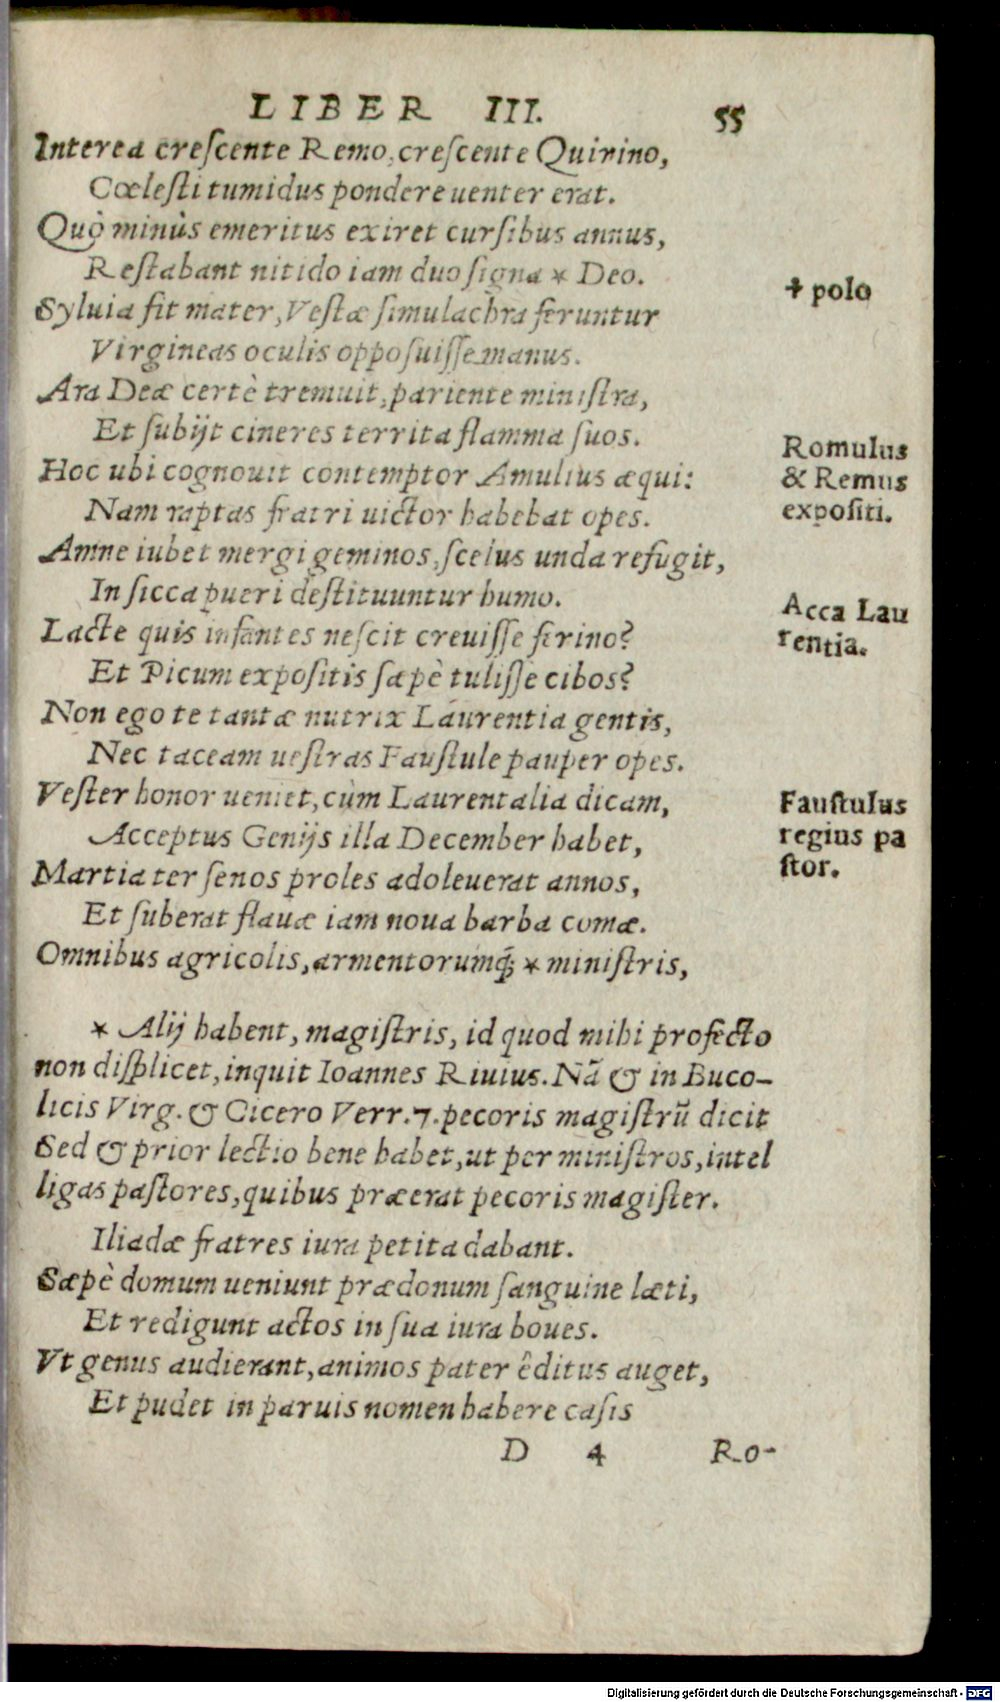 LIBER III. 55
Interea creſcente Remo, creſcente Quirino,
Cœleſti tumidus pondere uenter erat.
Quò minùs emeritus exiret curſibus annus,
Reſtabant nitido iam duo ſigna * Deo.
+ polo
Syluia fit mater, Veſtæ ſimulachra feruntur
Virgineas oculis oppoſuiſſe manus.
Ara Deæ certè tremuit, pariente miniſtra,
Et ſubijt cineres territa flamma ſuos.
Hoc ubi cognouit contemptor Amulius æqui:
Nam raptas fratri uictor habebat opes.
Romulus
& Remus
expoſiti.
Amne iubet mergi geminos, ſcelus unda refugit,
In ſicca pueri deſtituuntur humo.
Lacte quis infantes neſcit creuiſſe ferino?
Acca Lau
rentia.
Et Picum expoſitis ſæpè tuliſſe cibos?
Non ego te tantæ nutrix Laurentia gentis,
Nec taceam ueſtras Fauſtule pauper opes.
Veſter honor ueniet, cùm Laurentalia dicam,
Acceptus Genijs illa December habet,
Fauſtulus
regius pa
ſtor.
Martia ter ſenos proles adoleuerat annos,
Et ſuberat flauæ iam noua barba comæ.
Omnibus agricolis, armentorumq́; * miniſtris,
* Alij habent, magiſtris, id quod mihi profecto
non diſplicet, inquit Ioannes Riuius. Nã & in Buco-
licis Virg. & Cicero Verr. 7. pecoris magiſtrũ dicit
Sed & prior lectio bene habet, ut per miniſtros, intel
ligas paſtores, quibus præerat pecoris magiſter.
Iliadæ fratres iura petita dabant.
Sæpè domum ueniunt prædonum ſanguine læti,
Et redigunt actos in ſua iura boues.
Vt genus audierant, animos pater êditus auget,
Et pudet in paruis nomen habere caſis
D 4 Ro-
Digitalisierung gefördert durch die Deutsche Forschungsgemeinschaft - DFG